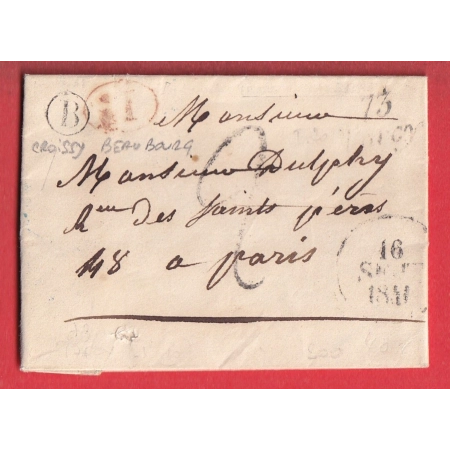 B
Monsieur
13
CROISSY BEAUBOURG
Monsieur Dulphy
Rue des Saints pères
48 a paris
2
16
SEPT